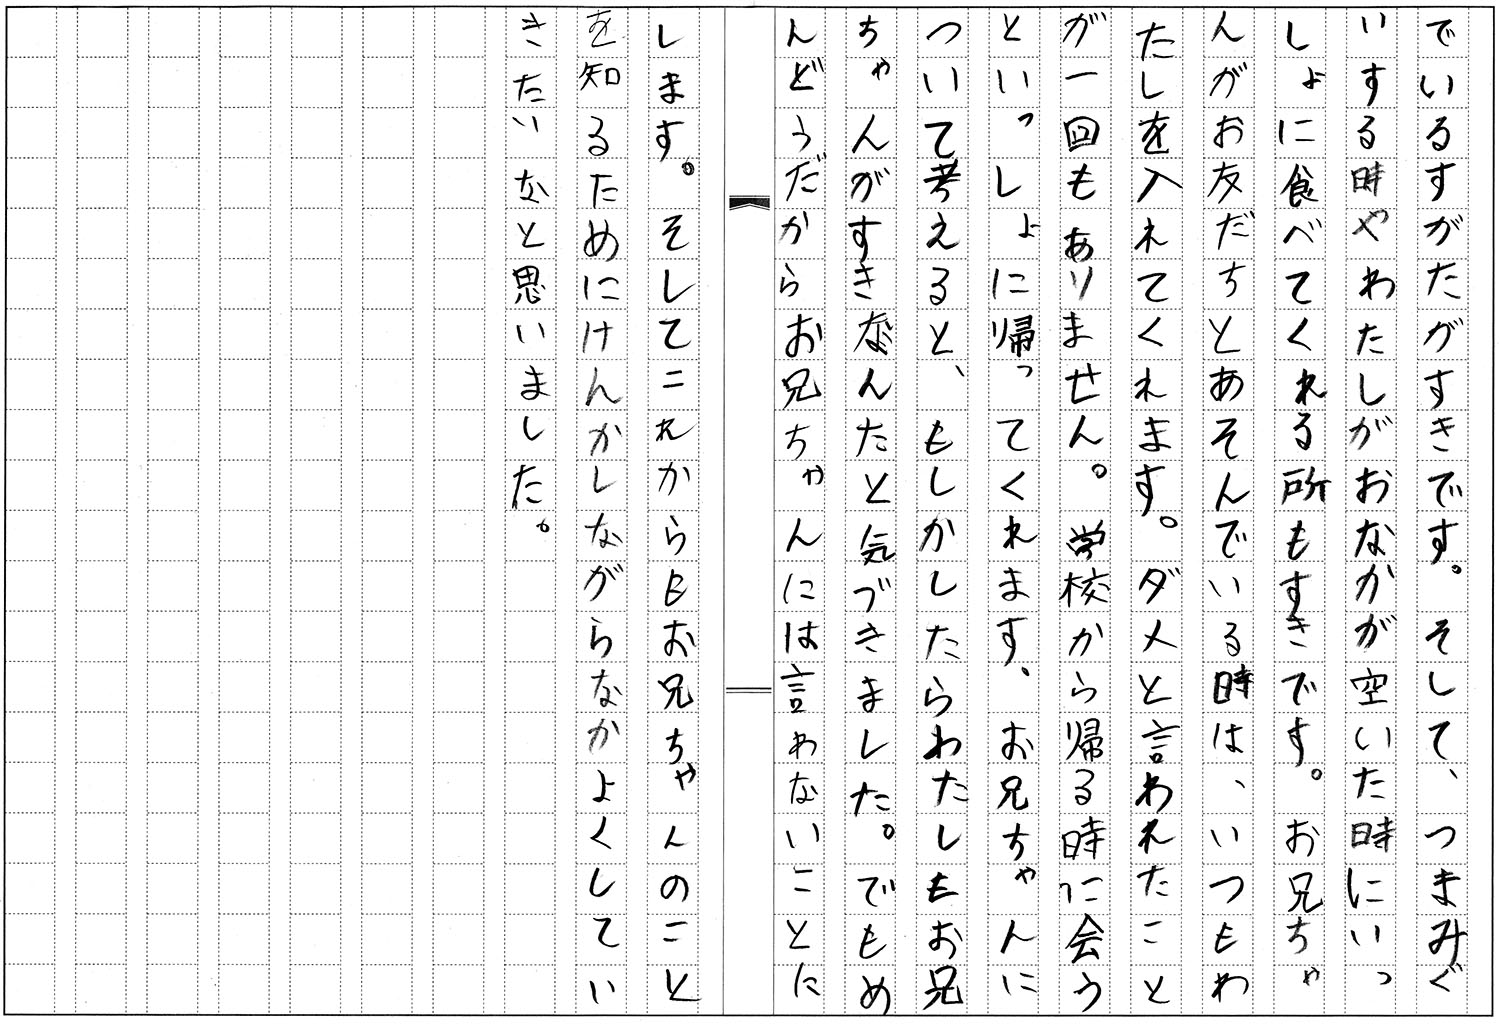 でいるすがたがすきです。そして、つまみぐ
いする時やわたしがおなかが空いた時にいっ
しょに食べてくれる所もすきです。お兄ちゃ
んがお友だちとあそんでいる時は、いつもわ
たしを入れてくれます。ダメと言われたこと
が一回もありません。学校から帰る時に会う
といっしょに帰ってくれます。お兄ちゃんに
ついて考えると、もしかしたらわたしもお兄
ちゃんがすきなんたと気づきました。でもめ
んどうだからお兄ちゃんには言わないことに
します。そしてこれからもお兄ちゃんのこと
を知るためにけんかしながらなかよくしてい
きたいなと思いました。